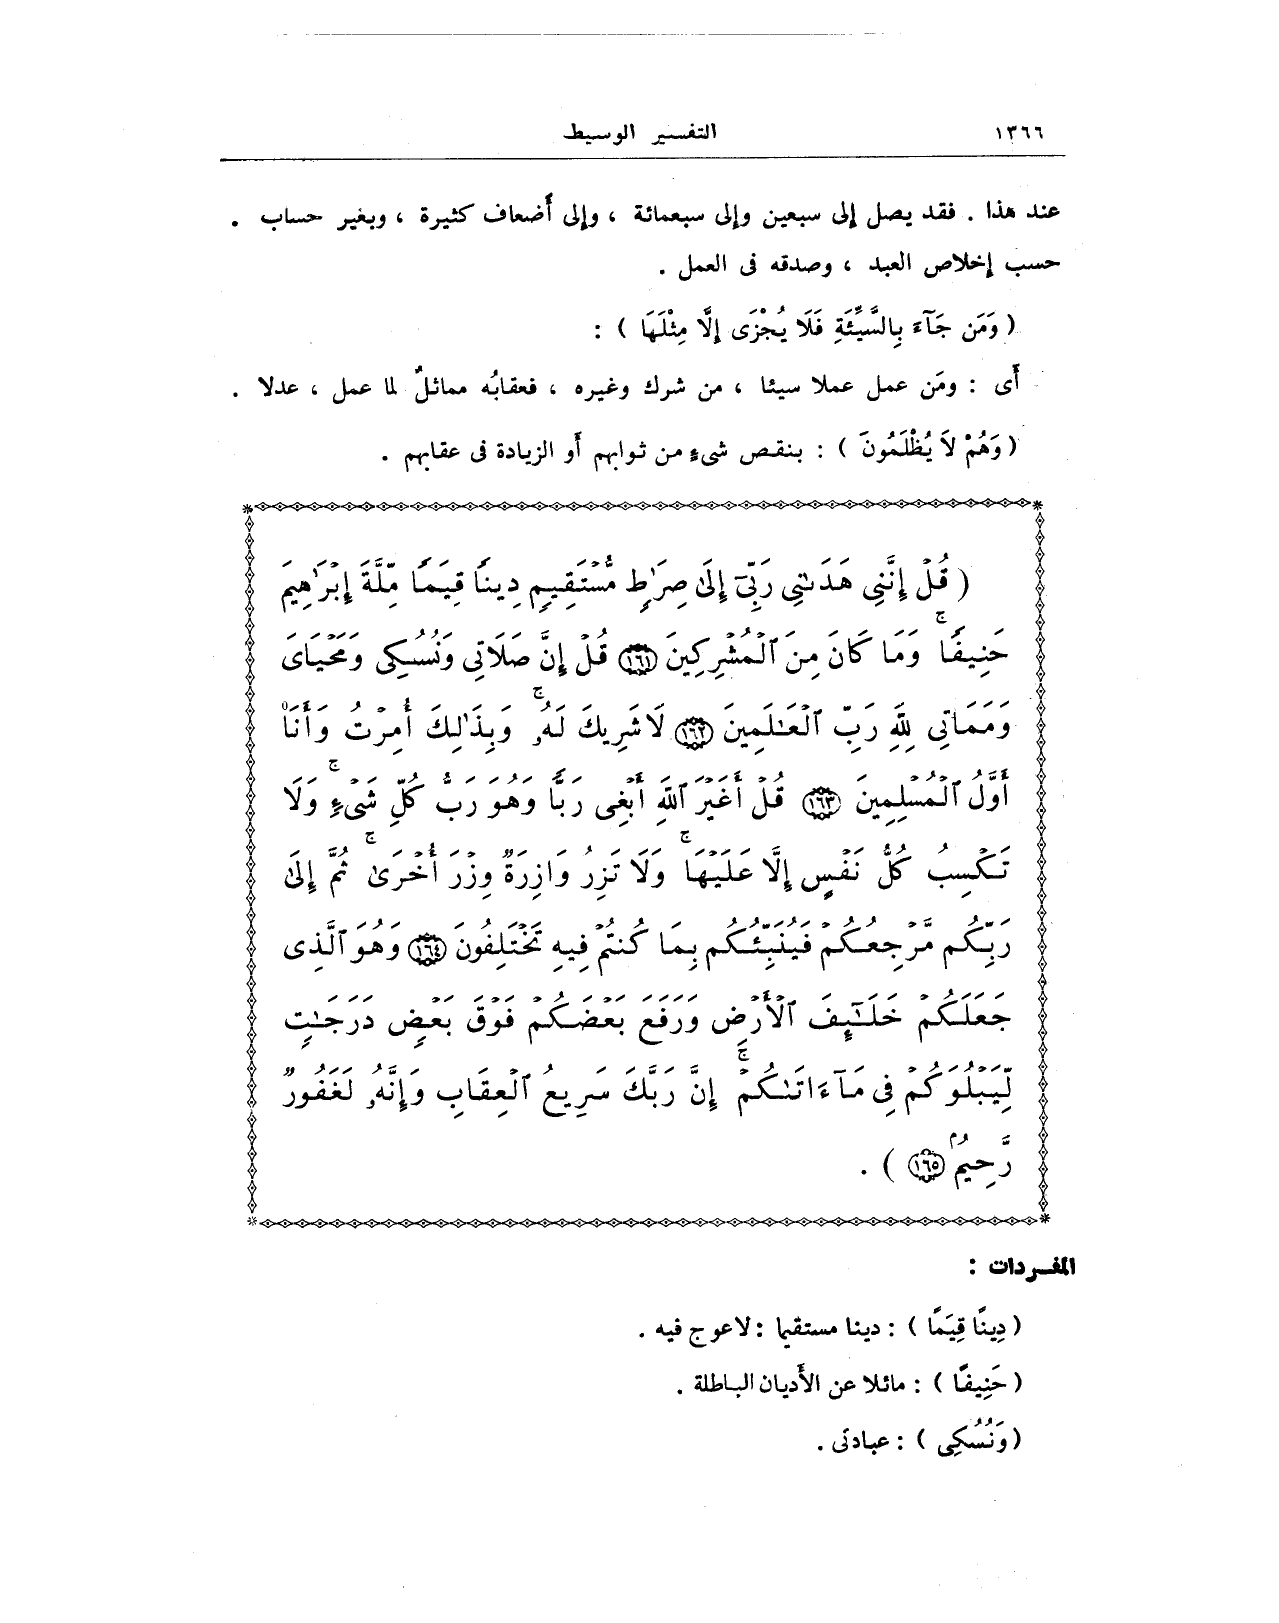 ١٣٦٦ التفسير الوسيط
عند هذا . فقد يصل إلى سبعين وإلى سبعمائة ، وإلى أَضعاف كثيرة ، وبغير حساب .
حسب إخلاص العبد ، وصدقه فى العمل .
( وَمَن جَآءَ بِالسَّيِّئَةِ فَلَا يُجْزَى إِلَّا مِثْلَهَا ) :
أَى : ومَن عمل عملا سيئا ، من شرك وغيره ، فعقابُه مماثلٌ لما عمل ، عدلا .
( وَهُمْ لاَ يُظْلَمُونَ ) : بنقص شىءٍ من ثوابهم أَو الزيادة فى عقابهم .
( قُلْ إِنَّنِى هَدَىٰنِى رَبِّىٓ إِلَىٰ صِرَٰطٍ مُّسْتَقِيمٍ دِينًا قِيَمًا مِّلَّةَ إِبْرَٰهِيمَ
حَنِيفًا ۚ وَمَا كَانَ مِنَ ٱلْمُشْرِكِينَ ١٦١ قُلْ إِنَّ صَلَاتِى وَنُسُكِى وَمَحْيَاىَ
وَمَمَاتِى لِلَّهِ رَبِّ ٱلْعَٰلَمِينَ ١٦٢ لَا شَرِيكَ لَهُۥ ۖ وَبِذَٰلِكَ أُمِرْتُ وَأَنَا۠
أَوَّلُ ٱلْمُسْلِمِينَ ١٦٣ قُلْ أَغَيْرَ ٱللَّهِ أَبْغِى رَبًّا وَهُوَ رَبُّ كُلِّ شَىْءٍ ۚ وَلَا
تَكْسِبُ كُلُّ نَفْسٍ إِلَّا عَلَيْهَا ۚ وَلَا تَزِرُ وَازِرَةٌ وِزْرَ أُخْرَىٰ ۚ ثُمَّ إِلَىٰ
رَبِّكُم مَّرْجِعُكُمْ فَيُنَبِّئُكُم بِمَا كُنتُمْ فِيهِ تَخْتَلِفُونَ ١٦٤ وَهُوَ ٱلَّذِى
جَعَلَكُمْ خَلَٰٓئِفَ ٱلْأَرْضِ وَرَفَعَ بَعْضَكُمْ فَوْقَ بَعْضٍ دَرَجَٰتٍ
لِّيَبْلُوَكُمْ فِى مَآ ءَاتَىٰكُمْ ۗ إِنَّ رَبَّكَ سَرِيعُ ٱلْعِقَابِ وَإِنَّهُۥ لَغَفُورٌ
رَّحِيمٌ ١٦٥ ) .
المفـردات :
( دِينًا قِيَمًا ) : دينا مستقيما : لاعوج فيه .
( حَنِيفًا ) : مائلا عن الأَديان الباطلة .
( وَنُسُكِى ) : عبادتى .